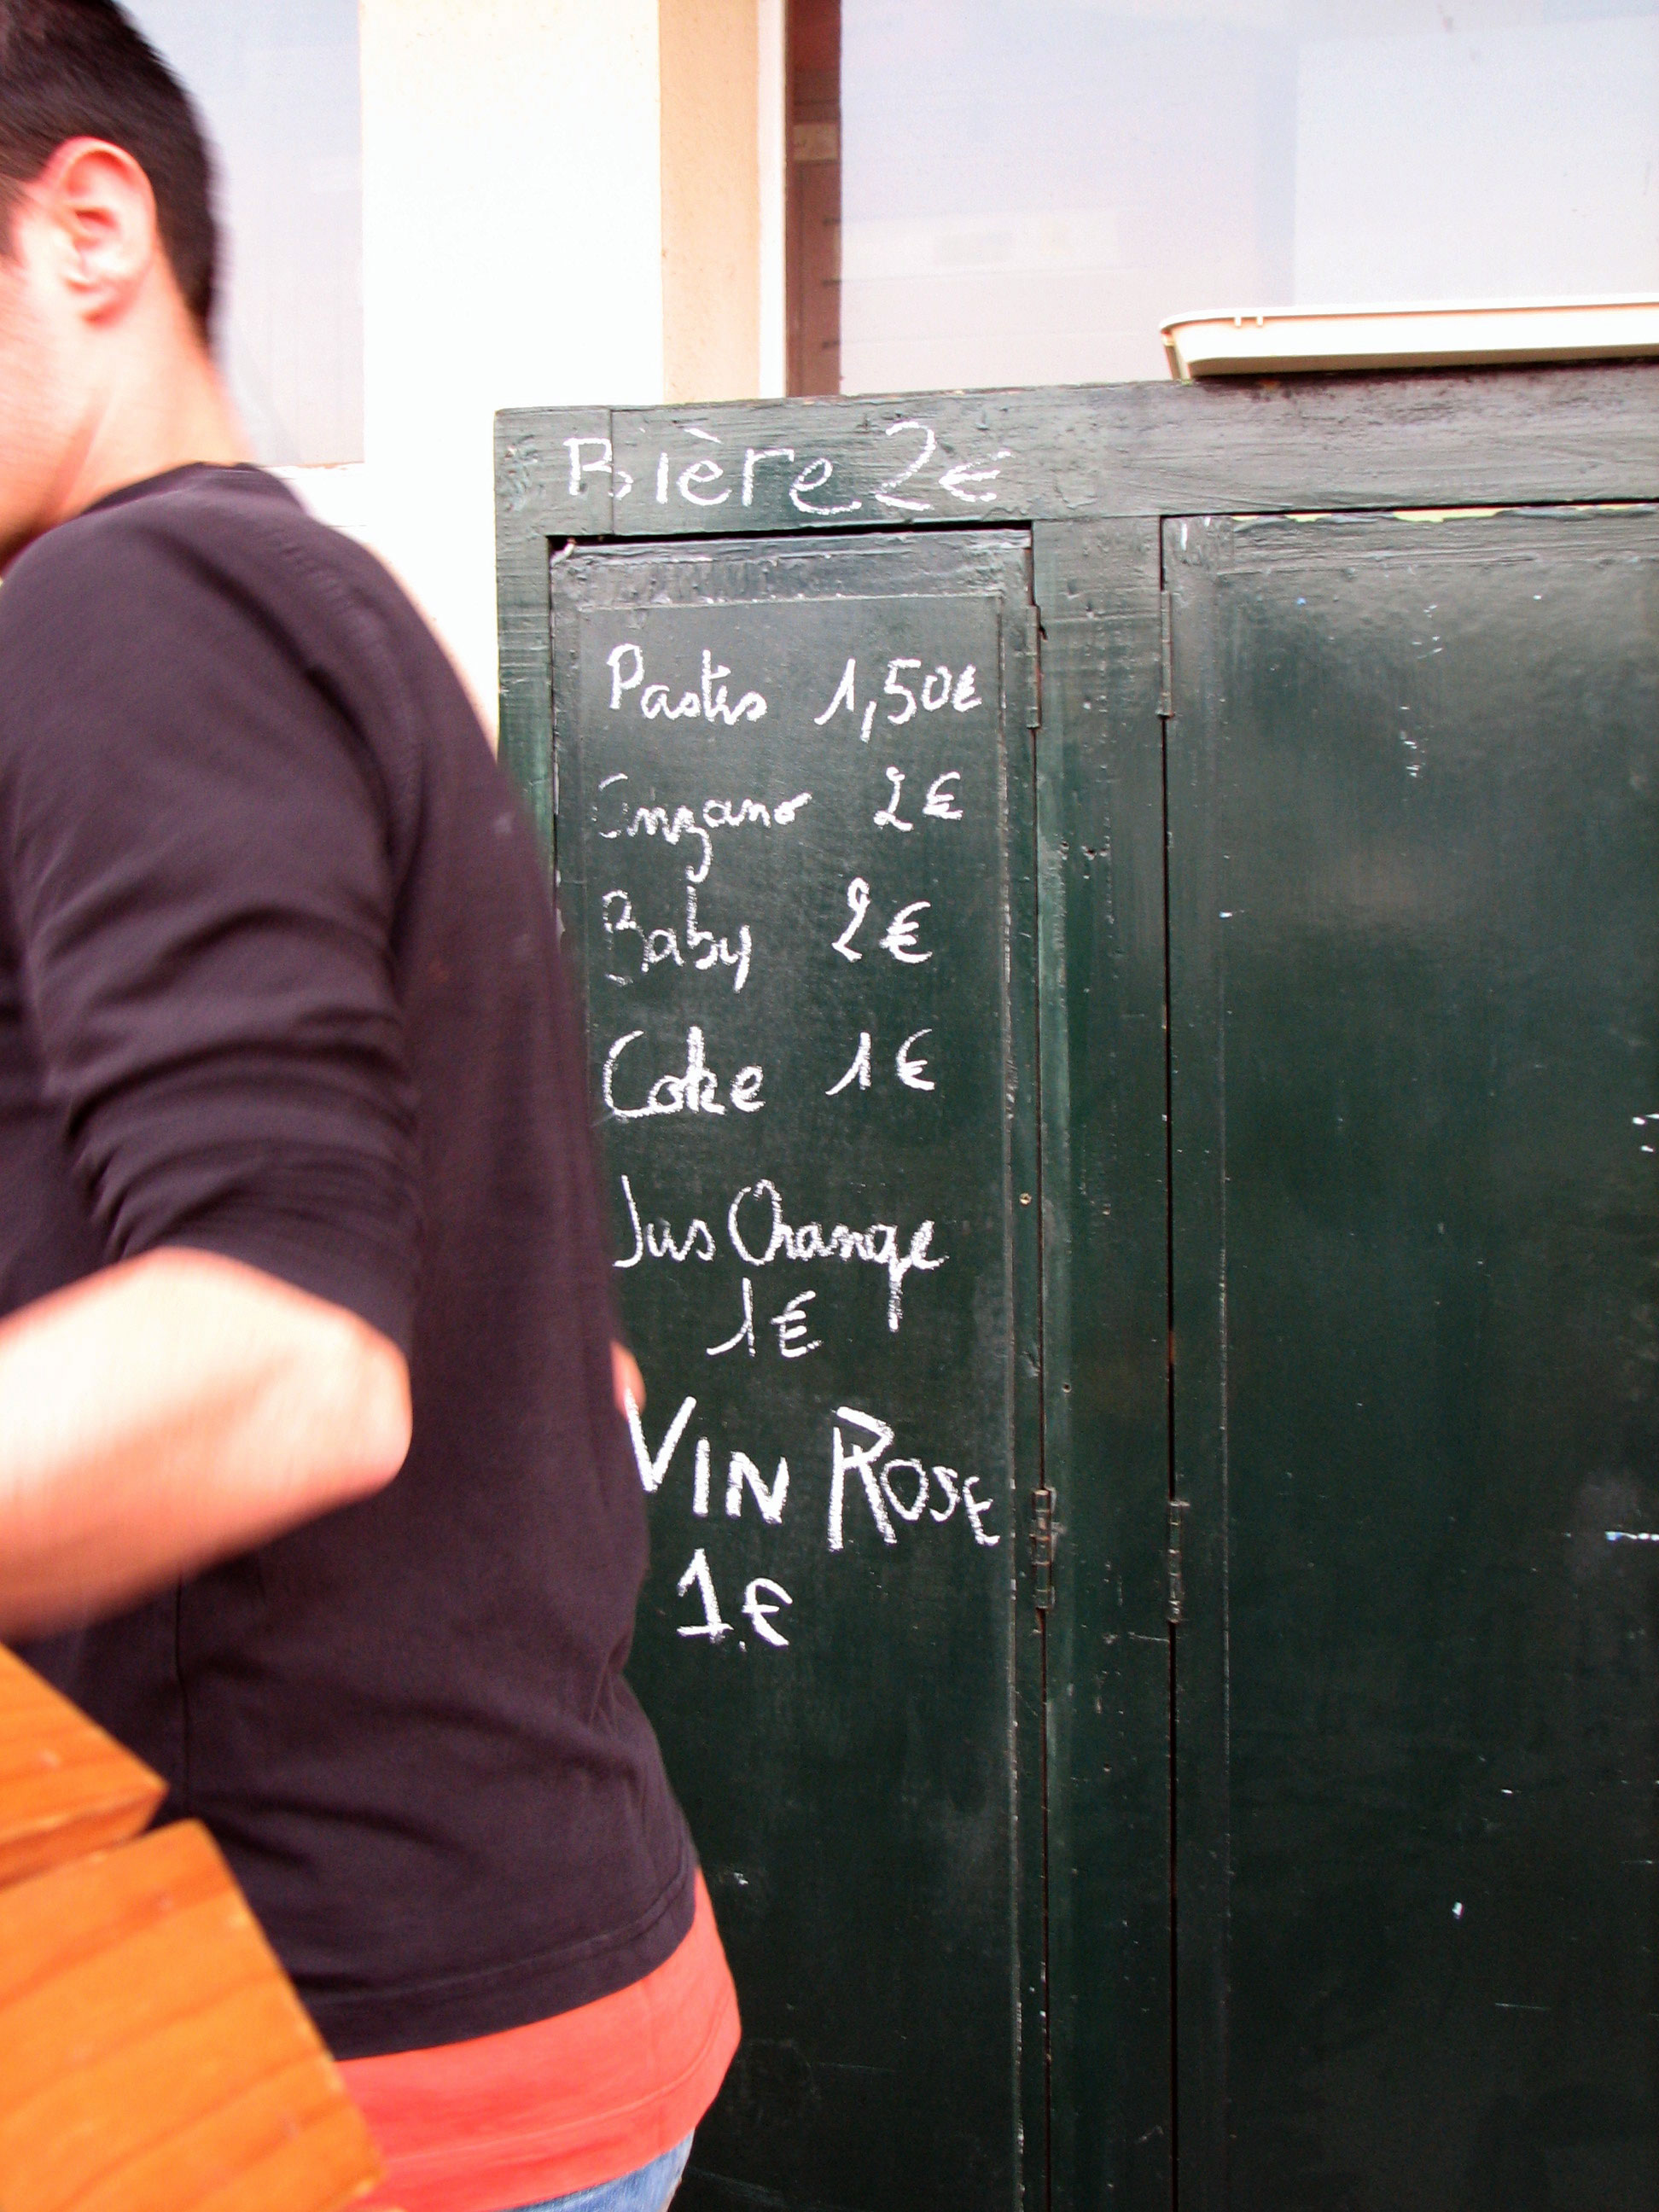 Bière 2€
Pastis 1,50€
Cinzano 2€
Baby 2€
Coke 1€
Jus Orange
1€
VIN ROSE
1€